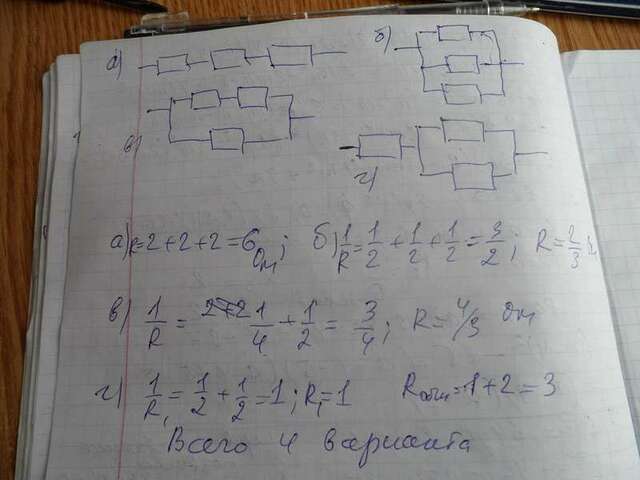 а)
б)
в)
г)
а) R=2+2+2=6 Ом; б) 1/R=1/2+1/2+1/2=3/2; R=2/3
в) 1/R=1/4+1/2=3/4; R=4/3 Ом
г) 1/R₁=1/2+1/2=1; R₁=1 Rобщ=1+2=3
Всего 4 варианта